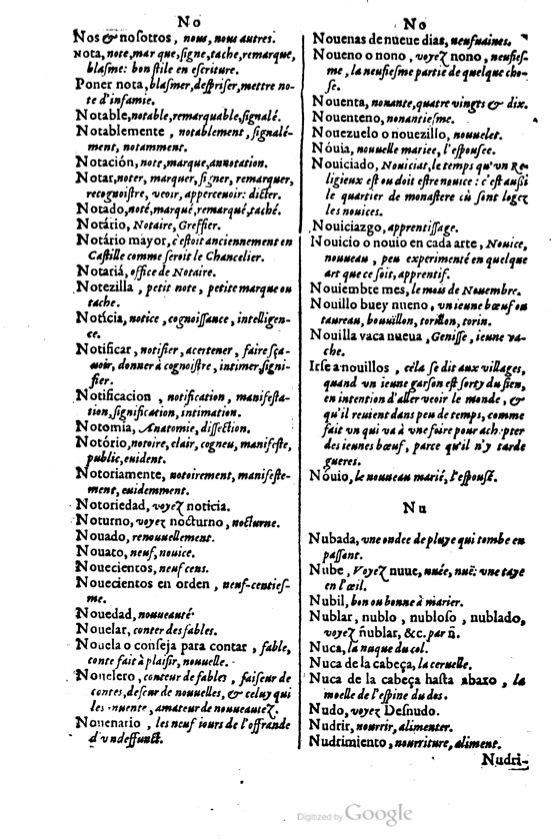 No
Nos & nosotros, nous, nous autres.
Nota, note, marque, signe, tache, remarque,
blasme: bon stile en escriture.
Poner nota, blasmer, despriser, mettre no-
te d'infamie.
Notable, notable, remarquable, signalé.
Notablemente, notablement, signalé-
ment, notamment.
Notación, note, marque, annotation.
Notar, noter, marquer, signer, remarquer,
recognoistre, veoir, appercevoir: dicter.
Notado, noté, marqué, remarqué, taché.
Notário, Notaire, Greffier.
Notário mayor, c'estoit anciennement en
Castille comme seroit le Chancelier.
Notariá, office de Notaire.
Notezilla, petit note, petite marque ou
tache.
Notícia, notice, cognoissance, intelligen-
ce.
Notificar, notifier, acertener, faire sça-
uoir, donner à cognoistre, intimer, signi-
fier.
Notificacion, notification, manifesta-
tion, signification, intimation.
Notomia, Anatomie, dissection.
Notório, notoire, clair, cogneu, manifeste,
public, euident.
Notoriamente, notoirement, manifeste-
ment, euidemment.
Notoriedad, voyez noticia.
Noturno, voyez nocturno, nocturne.
Nouado, renouuellement.
Nouato, neuf, nouice.
Nouecientos, neuf cens.
Nouecientos en orden, neuf-centies-
me.
Nouedad, nouueauté.
Nouelar, conter des fables.
Nouela o conseja para contar, fable,
conte fait à plaisir, nouuelle.
Nouelero, conteur de fables, faiseur de
contes, deseur de nouuelles, & celuy qui
les inuente, amateur de nouueautez.
Nouenario, les neuf iours de l'offrande
d'vn deffunct.
No
Nouenas de nueue dias, neufuaines.
Noueno o nono, voyez nono, neufies-
me, la neufiesme partie de quelque cho-
se.
Nouenta, nonante, quatre vingts & dix.
Nouenteno, nonantiesme.
Nouezuelo o nouezillo, nouuelet.
Nóuia, nouuelle mariee, l'espousee.
Nouiciado, Nouiciat, le temps qu'vn Re-
ligieux est ou doit estre nouice: c'est aussi
le quartier de monastere où sont logez
les nouices.
Nouiciazgo, apprentissage.
Nouicio o nouio en cada arte, Nouice,
nouueau, peu experimenté en quelque
art que ce soit, apprentif.
Nouiembre mes, le mois de Nouembre.
Nouillo buey nueno, vn ieune bœuf ou
taureau, bouuillon, torillon, torin.
Nouilla vaca nueua, Genisse, ieune va-
che.
Irse a nouillos, cela se dit aux villages,
quand vn ieune garson est sorty du sien,
en intention d'aller veoir le monde, &
qu'il reuient dans peu de temps, comme
fait vn qui va à vne foire pour achepter
des ieunes bœuf, parce qu'il n'y tarde
gueres.
Nóuio, le nouueau marié, l'espousé.
Nu
Nubada, vne ondee de pluye qui tombe en
passant.
Nube, Voyez nuue, nuée, nuë: vne taye
en l'œil.
Nubil, bon ou bonne à marier.
Nublar, nublo, nubloso, nublado,
voyez ñublar, &c. par ñ.
Nuca, la nuque du col.
Nuca de la cabeça, la ceruelle.
Nuca de la cabeça hasta abaxo, la
moelle de l'espine du dos.
Nudo, voyez Desnudo.
Nudrir, nourrir, alimenter.
Nudrimiento, nourriture, aliment.
Nudri-
Digitized by Google